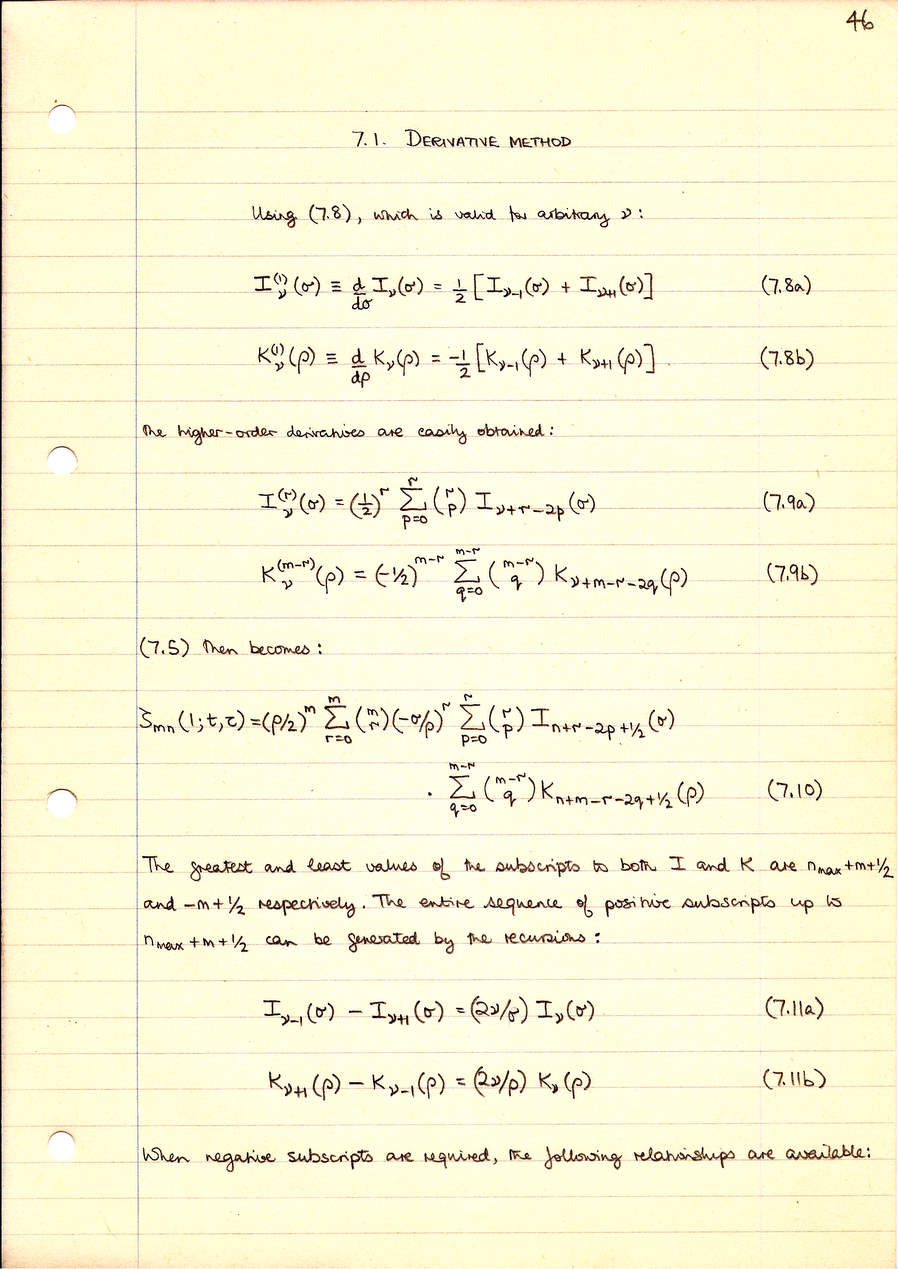 46
7.1. DERIVATIVE METHOD
Using (7.8), which is valid for arbitrary ν:
I_ν^(1)(σ) ≡ d/dσ I_ν(σ) = 1/2 [I_ν-1(σ) + I_ν+1(σ)] (7.8a)
K_ν^(1)(ρ) ≡ d/dρ K_ν(ρ) = -1/2 [K_ν-1(ρ) + K_ν+1(ρ)]. (7.8b)
The higher-order derivatives are easily obtained:
I_ν^(r)(σ) = (1/2)^r Σ_{p=0}^{r} (r p) I_ν+r-2p(σ) (7.9a)
K_ν^(m-r)(ρ) = (-1/2)^{m-r} Σ_{q=0}^{m-r} (m-r q) K_ν+m-r-2q(ρ) (7.9b)
(7.5) then becomes:
ζ_mn(1;t,τ) = (ρ/2)^m Σ_{r=0}^{m} (m r)(-σ/ρ)^r Σ_{p=0}^{r} (r p) I_n+r-2p+1/2(σ)
. Σ_{q=0}^{m-r} (m-r q) K_n+m-r-2q+1/2(ρ) (7.10)
The greatest and least values of the subscripts to both I and K are n_max+m+1/2
and -m+1/2 respectively. The entire sequence of positive subscripts up to
n_max+m+1/2 can be generated by the recursions:
I_ν-1(σ) - I_ν+1(σ) = (2ν/σ) I_ν(σ) (7.11a)
K_ν+1(ρ) - K_ν-1(ρ) = (2ν/ρ) K_ν(ρ) (7.11b)
When negative subscripts are required, the following relationships are available: